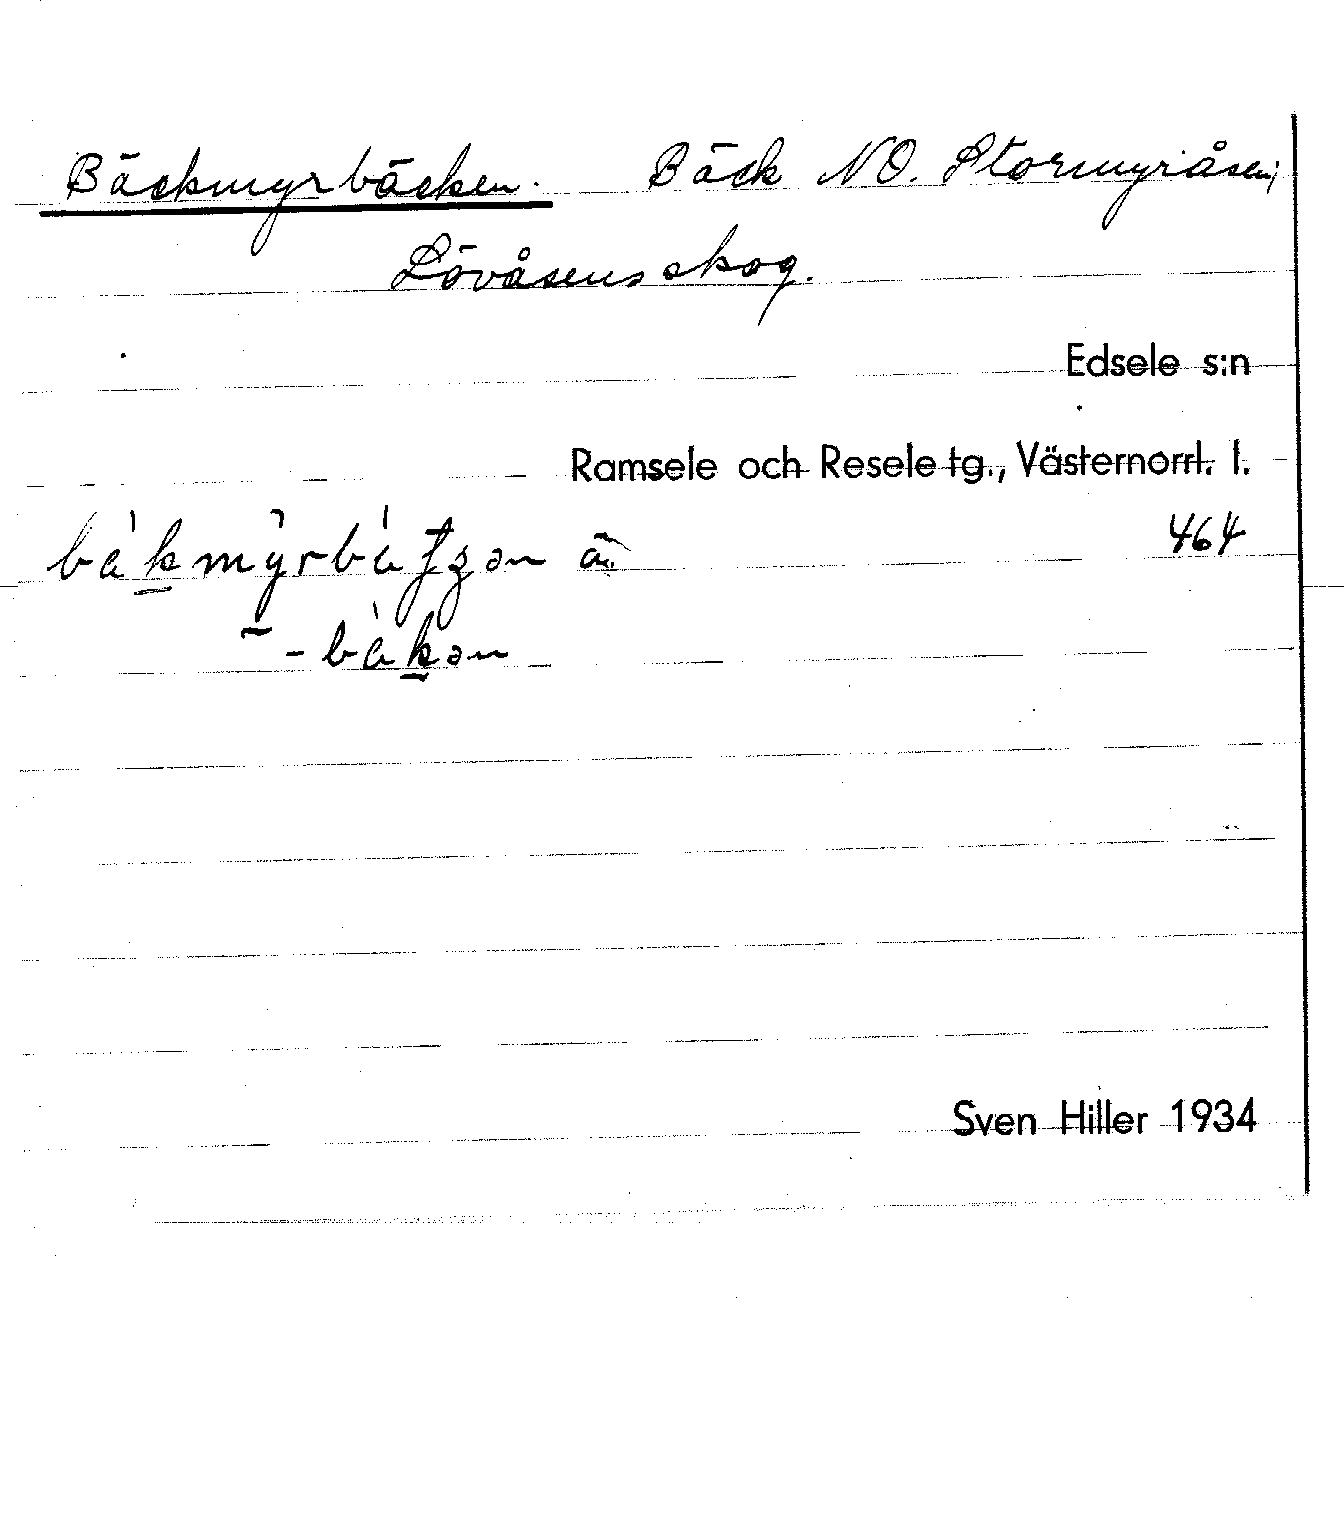 Bäckmyrbäcken. Bäck NO. Stormyråsen;
Lövåsens skog.
Edsele s:n
Ramsele och Resele tg., Västernorrl. l.
464
-bàkən
Sven Hiller 1934